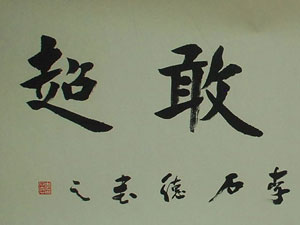 敢超
李石德書之